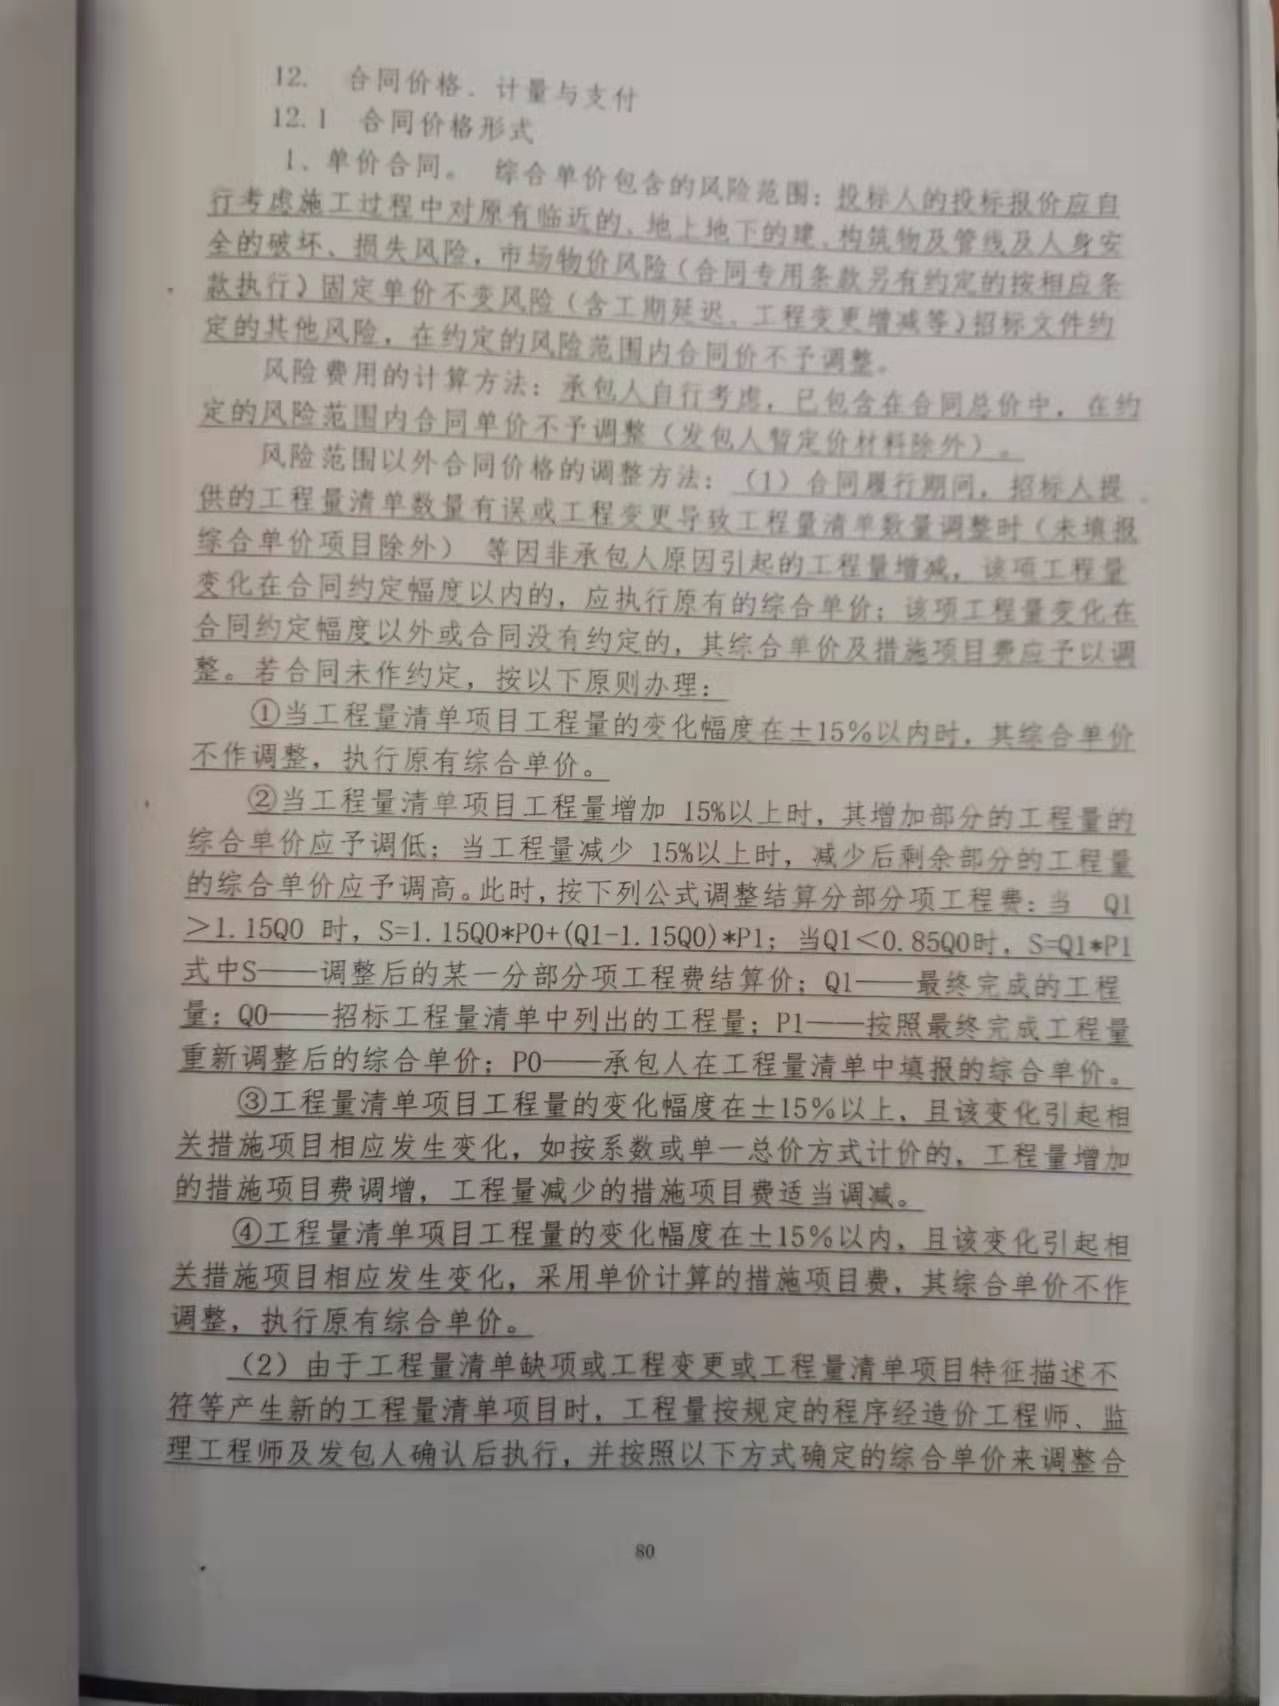 12. 合同价格、计量与支付
12.1 合同价格形式
1、单价合同。 综合单价包含的风险范围：投标人的投标报价应自
行考虑施工过程中对原有临近的、地上地下的建、构筑物及管线及人身安
全的破坏、损失风险，市场物价风险（合同专用条款另有约定的按相应条
款执行）固定单价不变风险（含工期延迟、工程变更增减等）招标文件约
定的其他风险，在约定的风险范围内合同价不予调整。
风险费用的计算方法：承包人自行考虑，已包含在合同总价中，在约
定的风险范围内合同单价不予调整（发包人暂定价材料除外）。
风险范围以外合同价格的调整方法：（1）合同履行期间，招标人提
供的工程量清单数量有误或工程变更导致工程量清单数量调整时（未填报
综合单价项目除外） 等因非承包人原因引起的工程量增减，该项工程量
变化在合同约定幅度以内的，应执行原有的综合单价；该项工程量变化在
合同约定幅度以外或合同没有约定的，其综合单价及措施项目费应予以调
整。若合同未作约定，按以下原则办理：
①当工程量清单项目工程量的变化幅度在±15%以内时，其综合单价
不作调整，执行原有综合单价。
②当工程量清单项目工程量增加 15%以上时，其增加部分的工程量的
综合单价应予调低；当工程量减少 15%以上时，减少后剩余部分的工程量
的综合单价应予调高。此时，按下列公式调整结算分部分项工程费：当 Q1
＞1.15Q0 时，S=1.15Q0*P0+(Q1-1.15Q0)*P1；当Q1＜0.85Q0时，S=Q1*P1
式中S——调整后的某一分部分项工程费结算价；Q1——最终完成的工程
量；Q0——招标工程量清单中列出的工程量；P1——按照最终完成工程量
重新调整后的综合单价；P0——承包人在工程量清单中填报的综合单价。
③工程量清单项目工程量的变化幅度在±15%以上，且该变化引起相
关措施项目相应发生变化，如按系数或单一总价方式计价的，工程量增加
的措施项目费调增，工程量减少的措施项目费适当调减。
④工程量清单项目工程量的变化幅度在±15%以内，且该变化引起相
关措施项目相应发生变化，采用单价计算的措施项目费，其综合单价不作
调整，执行原有综合单价。
（2）由于工程量清单缺项或工程变更或工程量清单项目特征描述不
符等产生新的工程量清单项目时，工程量按规定的程序经造价工程师、监
理工程师及发包人确认后执行，并按照以下方式确定的综合单价来调整合
80